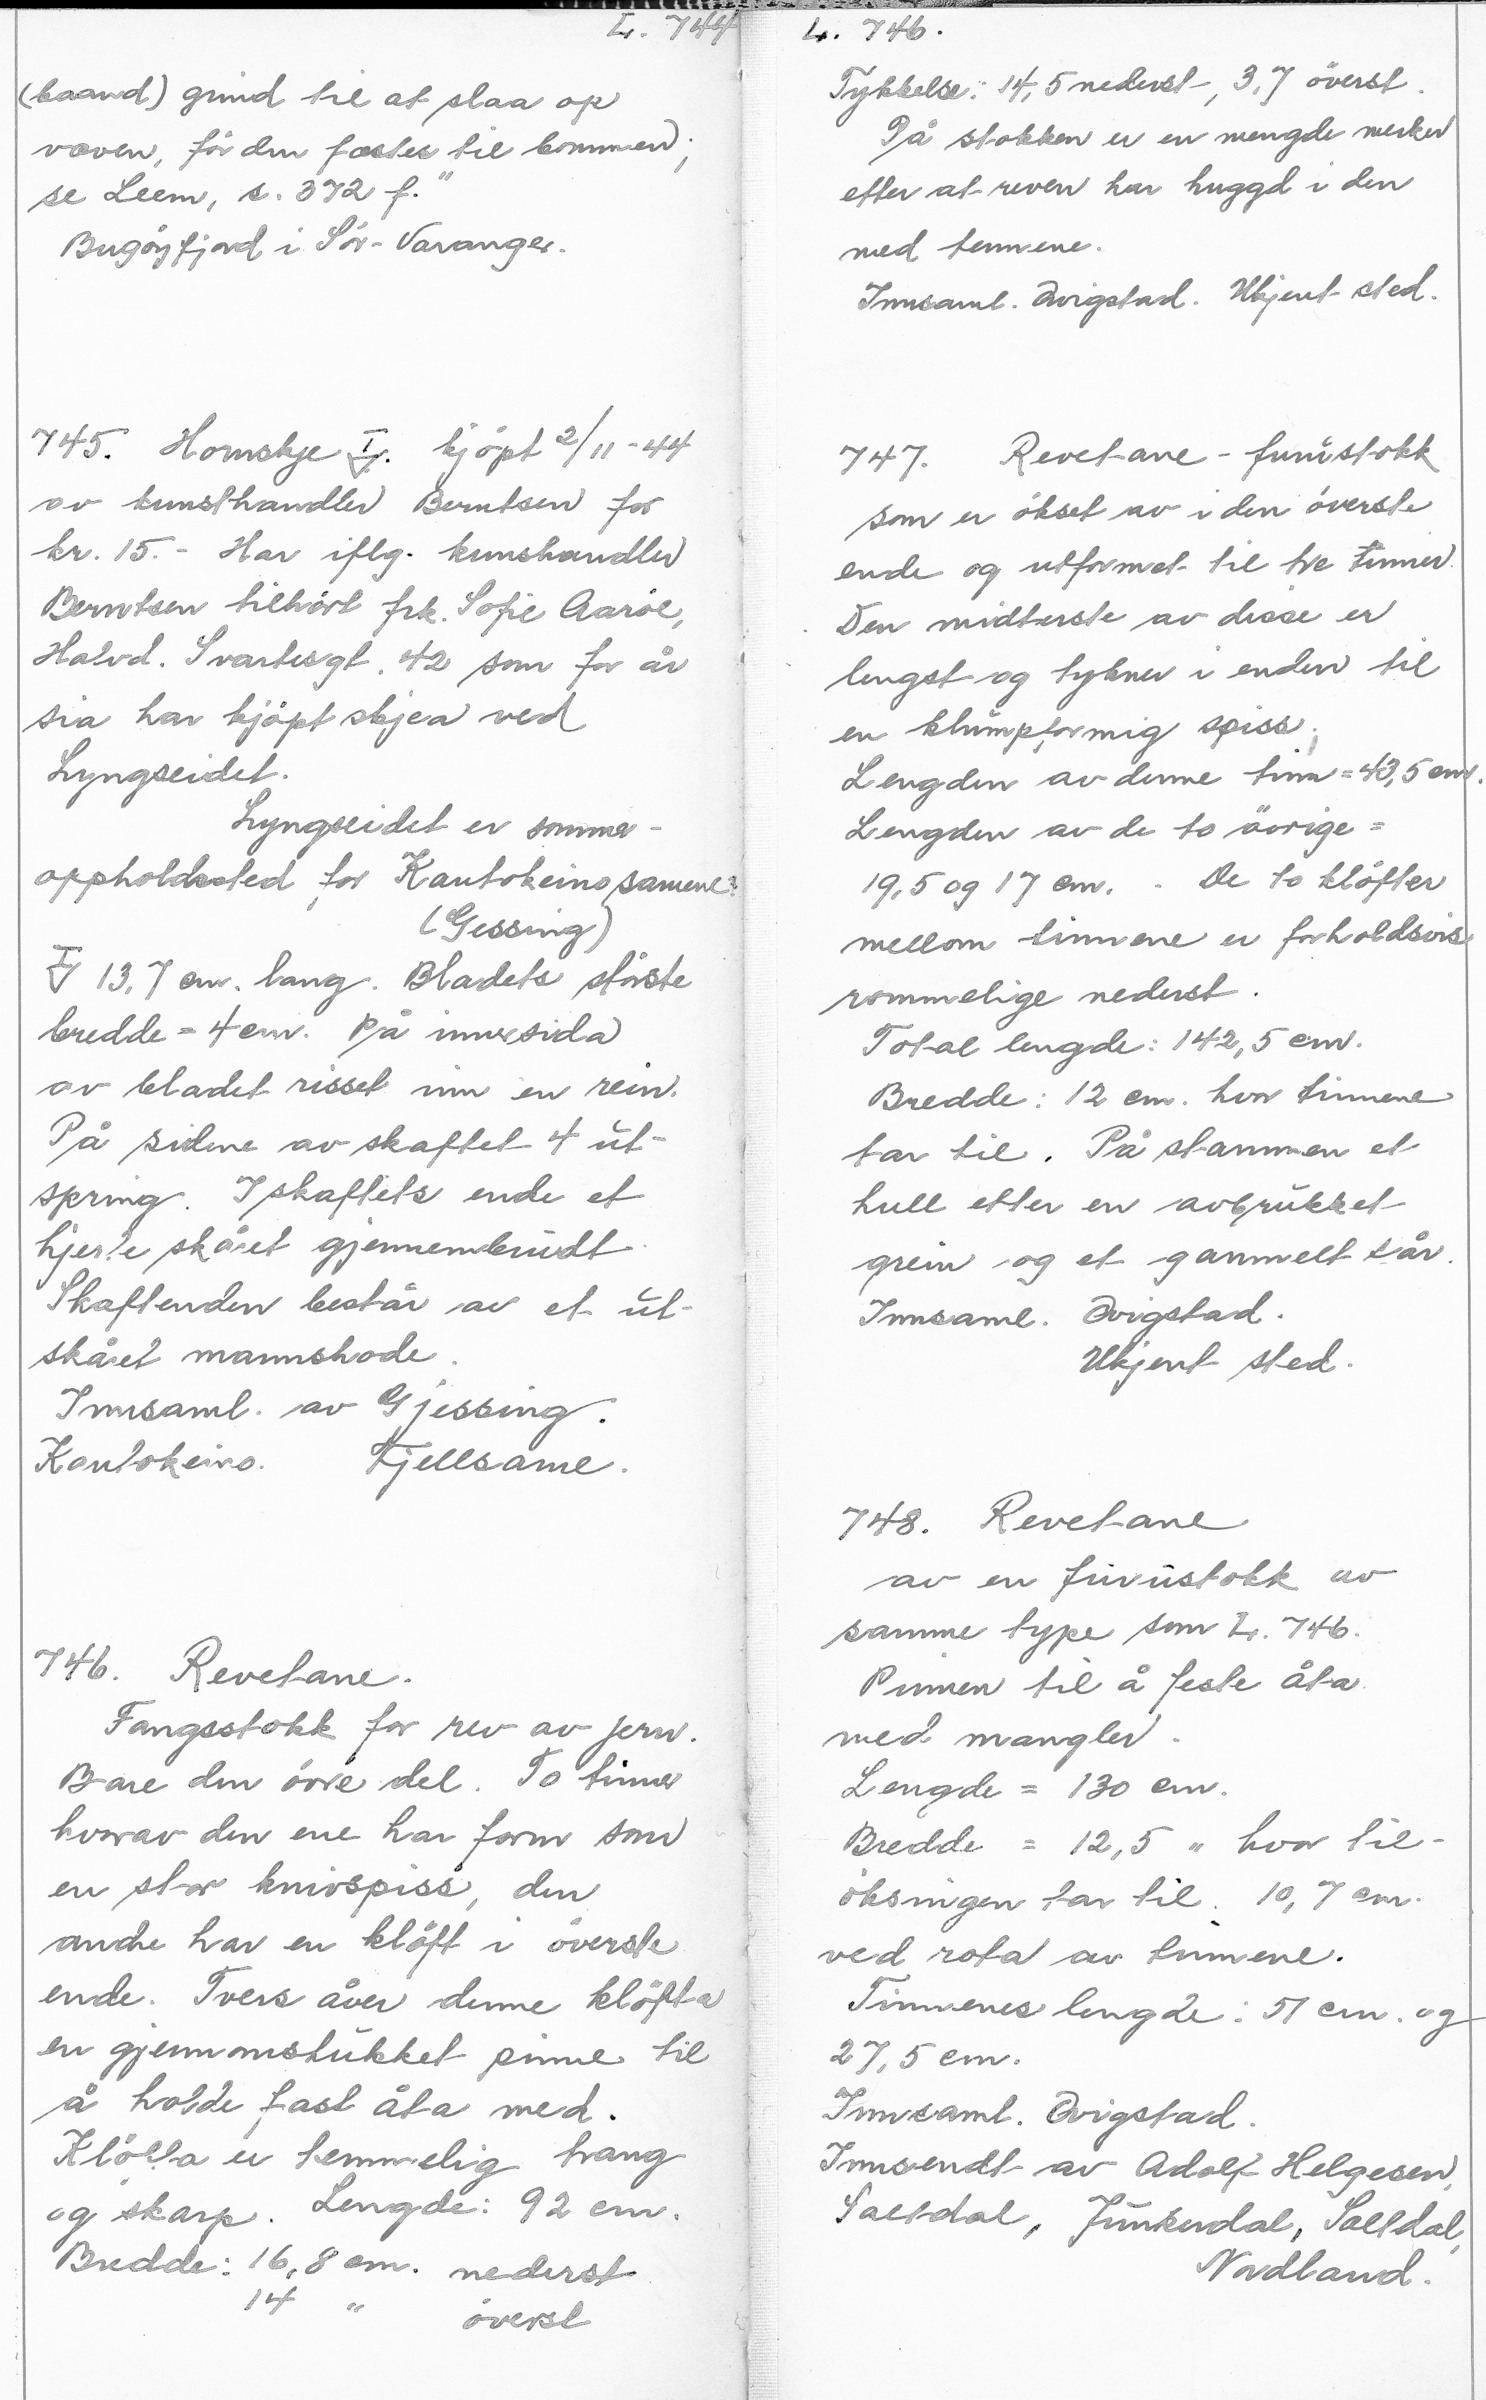 L. 744
(baand) grind til at slaa op
væven, för den fæstes til bommen);
se Leem, s. 372 f."
Bugöyfjord i Sör-Varanger.
745. Hornskje kjöpt 2/11-44
av kunsthandler Berntsen for
kr. 15.- Har iflg. kunshandler
Berntsen tilhört frk. Sofie Aaröe,
Halvd. Svartesgt. 42 som for år
sia har kjöpt skjea ved
Lyngseidet.
Lyngseidet er sommer-
oppholdssted for Kautokeinosamene.
(Gessing)
13,7 cm. lang. Bladets störste
bredde = 4 cm. På innersida
av bladet risset inn en rein.
På sidene av skaftet 4 ut-
spring. I skaftets ende et
hjerte skåret gjennembrudt.
Skaftenden består av et ut-
skåret mannshode.
Innsaml. av Gjessing.
Kautokeino. Fjellsame.
746. Revetane.
Fangsstokk for rev av jern.
Bare den övre del. To tinner
hvorav den ene har form som
en stor knivspiss, den
andre har en klöft i överste
ende. Tvers över denne klöfta
en gjennomstukket pinne til
å holde fast åta med.
Klöfta er temmelig trang
og skarp. Lengde: 92 cm.
Bredde: 16,8 cm. nederst
14 " överst
L. 746.
Tykkelse: 14,5 nederst, 3,7 överst.
På stokken er en mengde merker
etter at reven har huggd i den
med tennene.
Innsaml. Qvigstad. Ukjent sted.
747. Revetane - furustokk
som er ökset av i den överste
ende og utformet til tre tinner.
Den midterste av disse er
lengst og tykner i enden til
en klumpformig spiss.
Lengden av denne tinn = 43,5 cm.
Lengden av de to övrige =
19,5 og 17 cm. - De to klöfter
mellom tinnene er forholdsvis
rommelige nederst.
Total lengde: 142,5 cm.
Bredde: 12 cm. hvor tinnene
tar til. På stammen et
hull etter en avbrukket
grein og et gammelt sår.
Innsaml. Qvigstad.
Ukjent sted.
748. Revetane
av en furustokk av
samme type som L. 746.
Pinnen til å feste åta
med mangler.
Lengde = 130 cm.
Bredde = 12,5 " hvor til-
öksingen tar til. 10,7 cm.
ved rota av tinnene.
Tinnenes lengde: 51 cm. og
27,5 cm.
Innsaml. Qvigstad.
Innsendt av Adolf Helgesen,
Saltdal, Junkerdal, Saltdal,
Nordland.